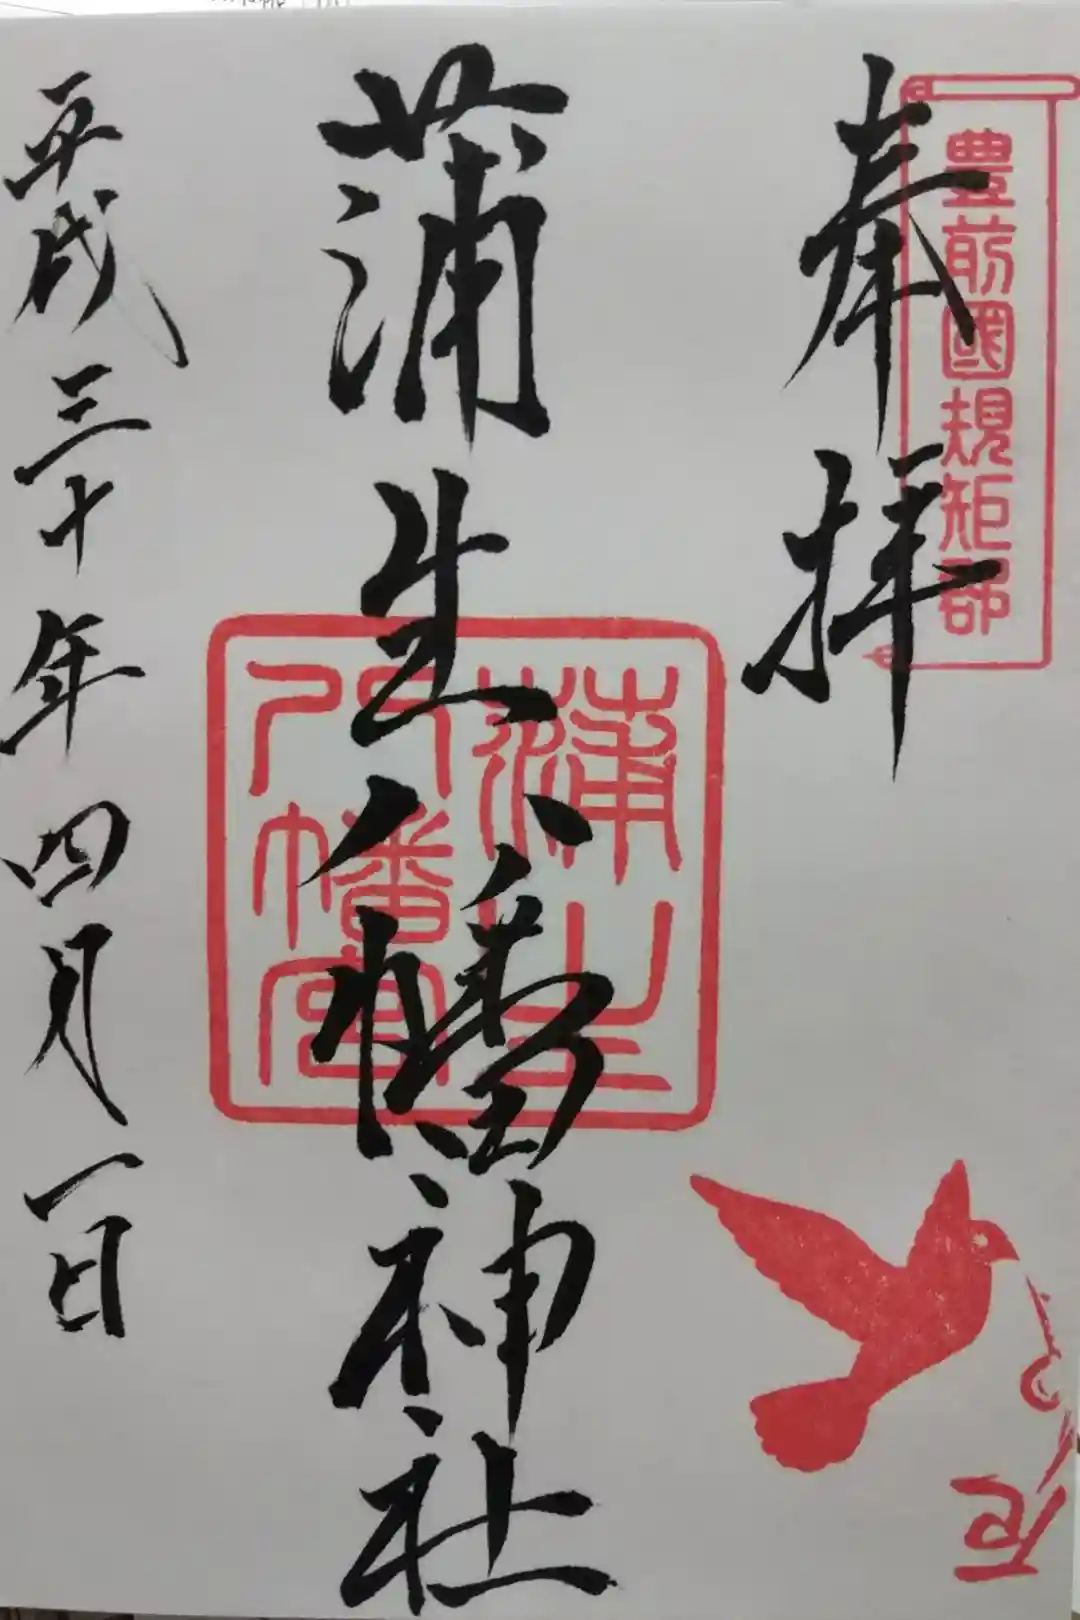 豊前國規矩郡
奉拝
蒲生八幡神社
蒲生
八幡宮
平成三十年四月一日